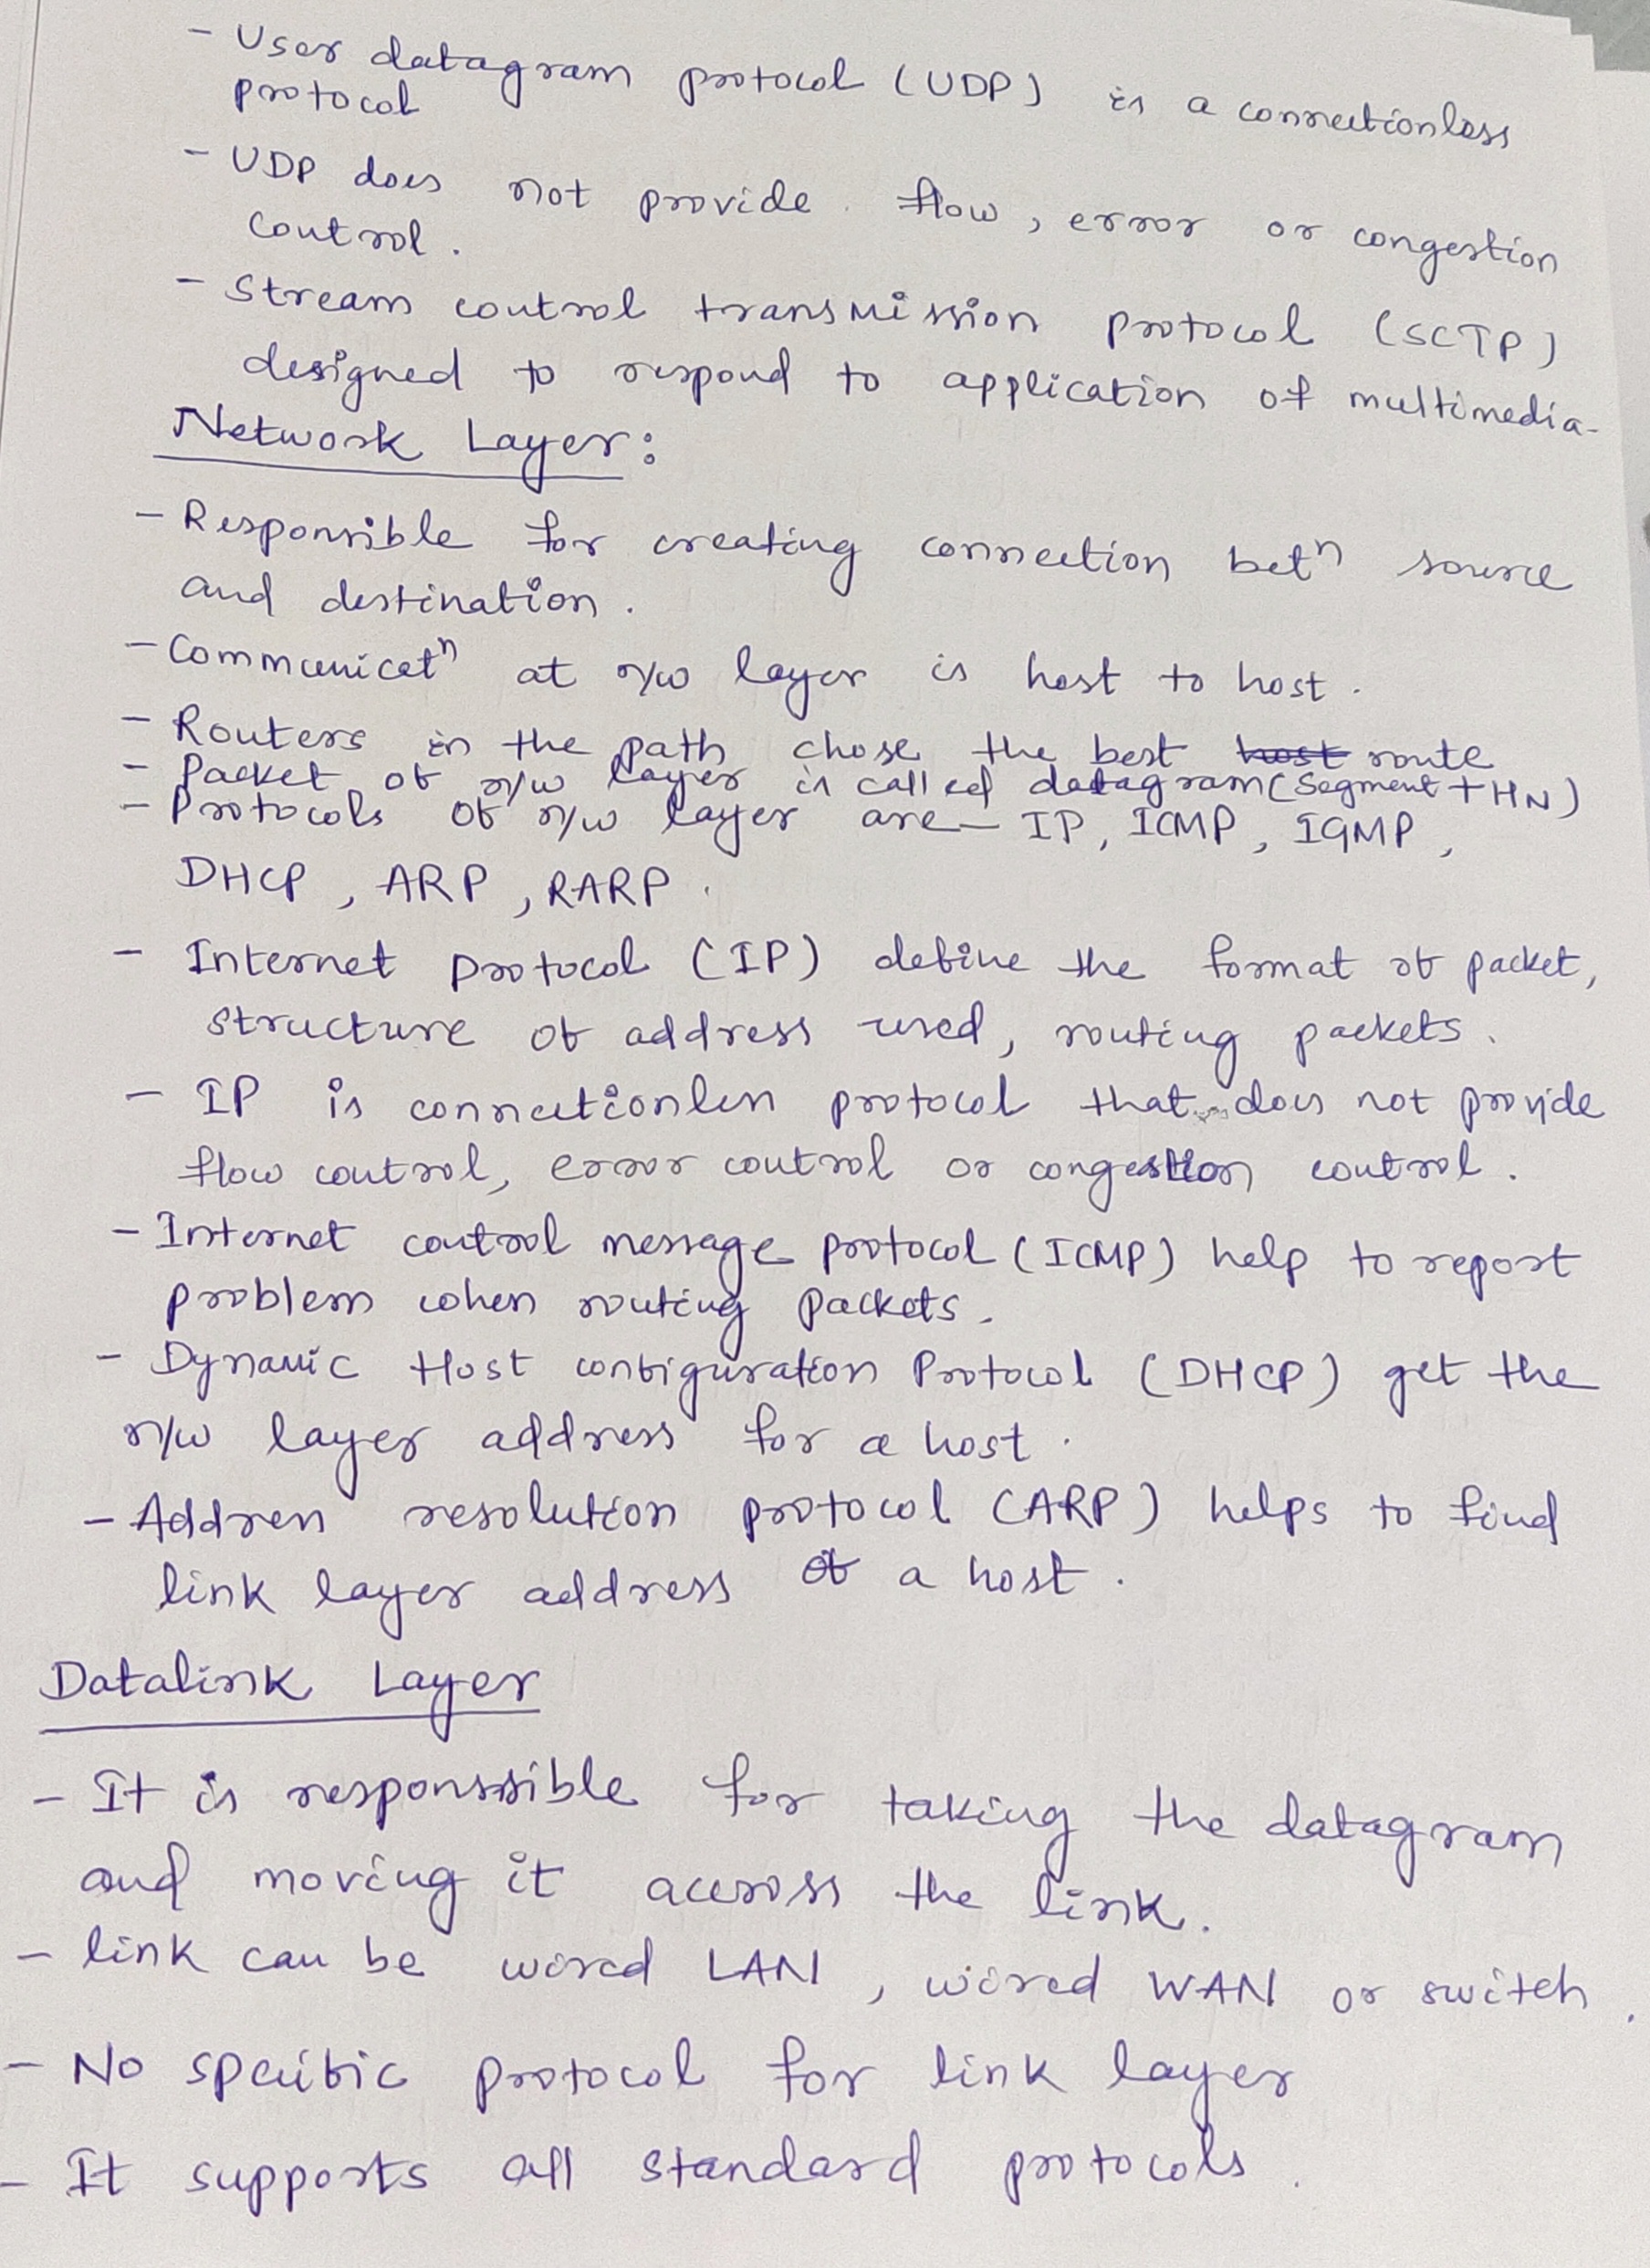 - User datagram protocol (UDP) is a connectionless
protocol
- UDP does not provide flow, error or congestion
control.
- Stream control transmission protocol (SCTP)
designed to respond to application of multimedia-
Network Layer:
- Responsible for creating connection betⁿ source
and destination.
- Communicatⁿ at n/w layer is host to host.
- Routers in the path chose the best ~~host~~ route
- Packet of n/w layer is called datagram (Segment + HN)
- Protocols of n/w layer are - IP, ICMP, IGMP,
DHCP, ARP, RARP.
- Internet protocol (IP) define the format of packet,
structure of address used, routing packets.
- IP is connectionless protocol that does not provide
flow control, error control or congestion control.
- Internet control message protocol (ICMP) help to report
problem when routing packets.
- Dynamic Host configuration Protocol (DHCP) get the
n/w layer address for a host.
- Address resolution protocol (ARP) helps to find
link layer address of a host.
Datalink Layer
- It is responsible for taking the datagram
and moving it across the link.
- link can be wired LAN, wired WAN or switch.
- No specific protocol for link layer
- It supports all standard protocols.